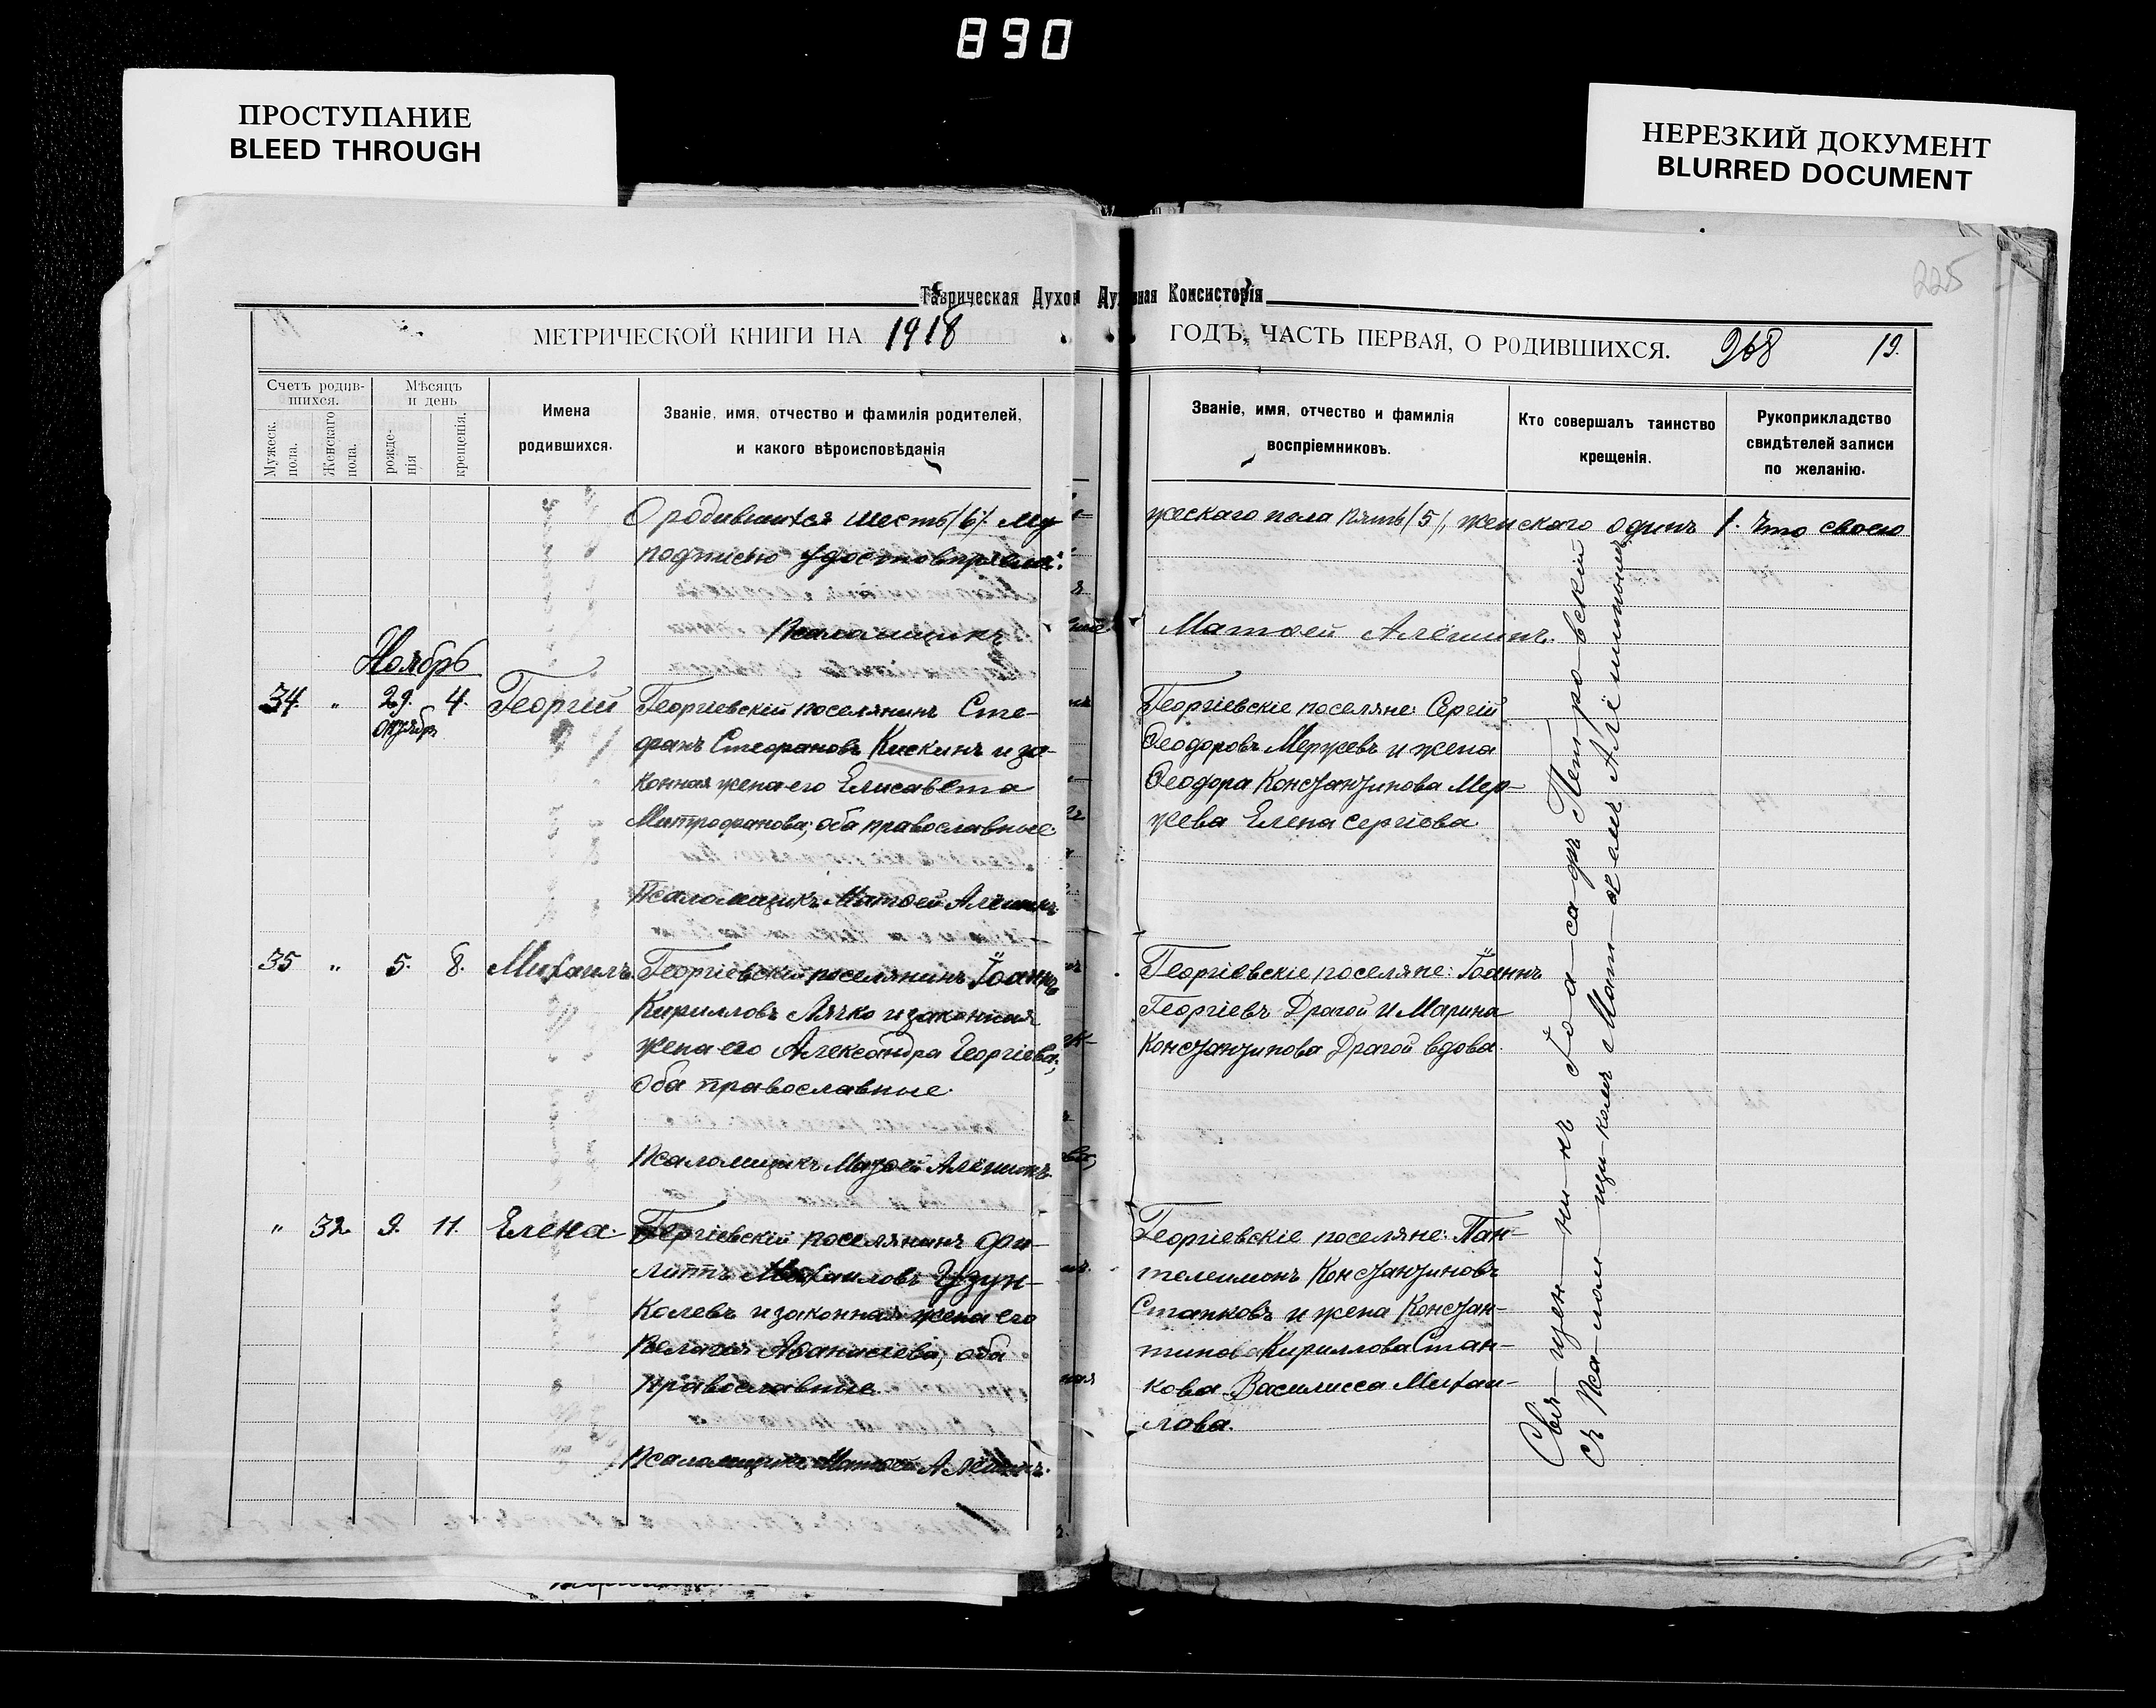 890
ПРОСТУПАНИЕ
BLEED THROUGH
НЕРЕЗКИЙ ДОКУМЕНТ
BLURRED DOCUMENT
225
Таврическая Духов Духовная Консисторія
МЕТРИЧЕСКОЙ КНИГИ НА 1918 ГОДЪ, ЧАСТЬ ПЕРВАЯ, О РОДИВШИХСЯ. 268 19.
Счетъ родив-
шихся.
Мужеск.
пола.
Женскаго
пола.
Мѣсяцъ
и день
рожде-
нія
крещенія.
Имена
родившихся.
Званіе, имя, отчество и фамилія родителей,
и какого вѣроисповѣданія
Званіе, имя, отчество и фамилія
воспріемниковъ.
Кто совершалъ таинство
крещенія.
Рукоприкладство
свидѣтелей записи
по желанію.
О родившихся шесть /6/. Му жескаго пола пять /5/, женскаго одинъ 1. Что своею
подписью удостовѣряемъ:
Псаломщикъ Матѳей Алёшинъ.
Ноябрь
34. " 29. 4. Георгій
Октябр.
Георгіевскій поселянинъ Сте-
фанъ Стефановъ Кискинъ и за-
конная жена его Елисавета
Митрофанова; оба православные.
Псаломщикъ Матѳей Алёшинъ
Георгіевскіе поселяне: Сергій
Ѳеодоровъ Мержевъ и жена
Ѳеодора Константинова Мер-
жева Елена Сергіова.
35 " 5. 8. Михаилъ.
Георгіевскій поселянинъ Іоаннъ
Кирилловъ Лячко и законная
жена его Александра Георгіева,
оба православные.
Псаломщикъ Матѳей Алёшинъ.
Георгіевскіе поселяне: Іоаннъ
Георгіевъ Драгой и Марина
Константинова Драгой вдова.
" 32. 9. 11. Елена.
Георгіевскій поселянинъ Фи-
липпъ Михаиловъ Узун-
Колевъ и законная жена его
Пелагея Аѳанасіева, оба
православные.
Псаломщикъ Матѳей Алёшинъ.
Георгіевскіе поселяне: Пан-
телеимонъ Константиновъ
Станковъ и жена Констан-
тинова Кириллова Стан-
кова Василисса Михаи-
лова.
Свя-щен-ни-къ Іо-а-са-фъ Пет-ро-вскій
съ Пса-лом-щи-комъ Мат-ѳе-емъ Алё-шинымъ